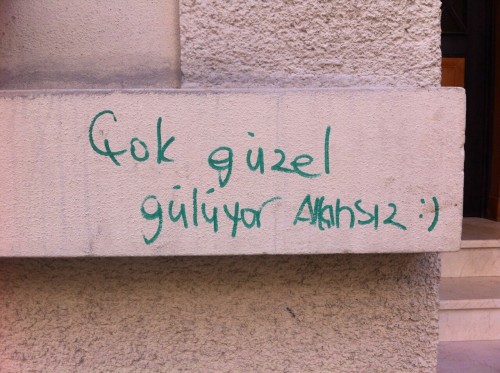 Çok güzel
gülüyor Allahsız :)